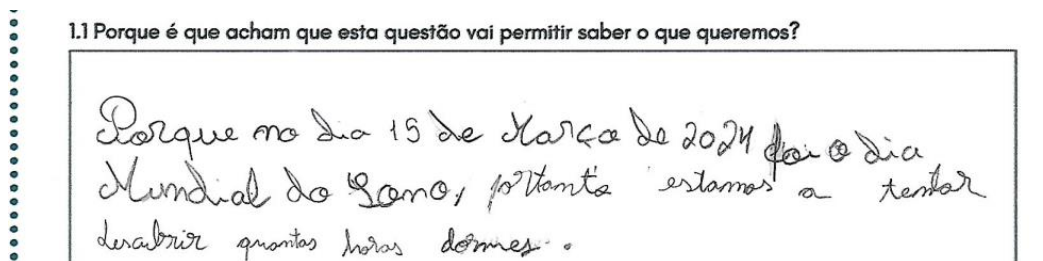 1.1 Porque é que acham que esta questão vai permitir saber o que queremos?
Porque no dia 15 de Março de 2024 foi o dia
Mundial do Sono, portanto estamos a tentar
descubrir quantas horas dormes.